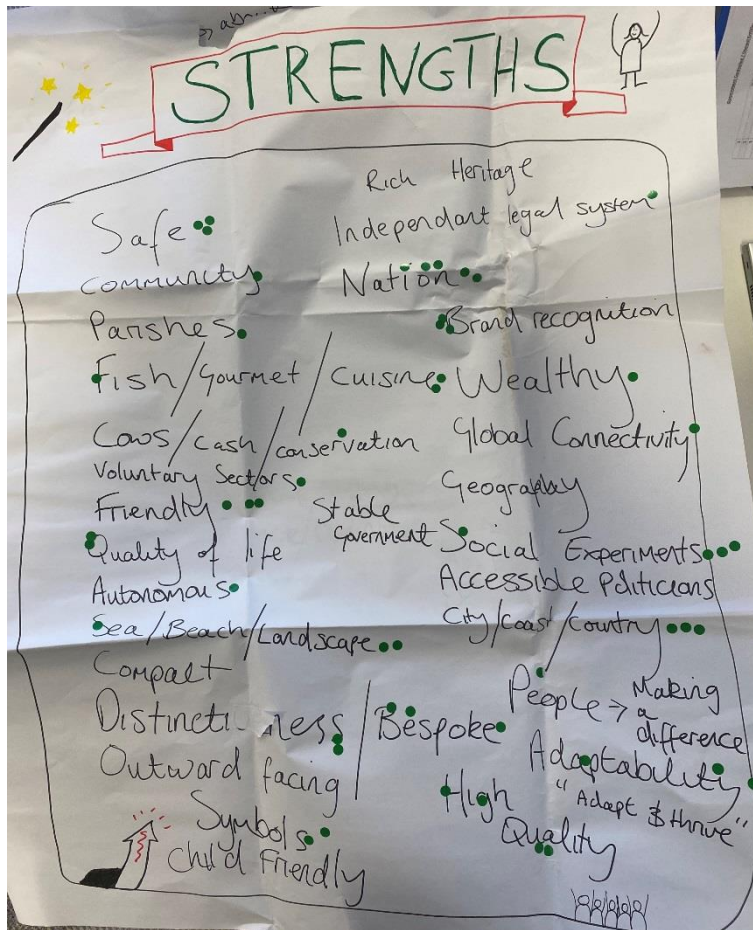 STRENGTHS
Rich Heritage
Safe
Independant legal system
Community
Nation
Parishes
Brand recognition
Fish/Gourmet/Cuisine
Wealthy
Cows/cash/conservation
Global Connectivity
Voluntary Sectors
Geography
Friendly
Stable
Government
Quality of life
Social Experiments
Autonomous
Accessible Politicians
Sea/Beach/Landscape
City/Coast/Country
Compact
People → Making
a
difference
Distinctiveness/Bespoke
Adaptability
"Adapt & thrive"
Outward facing
High
Quality
Symbols
Child Friendly